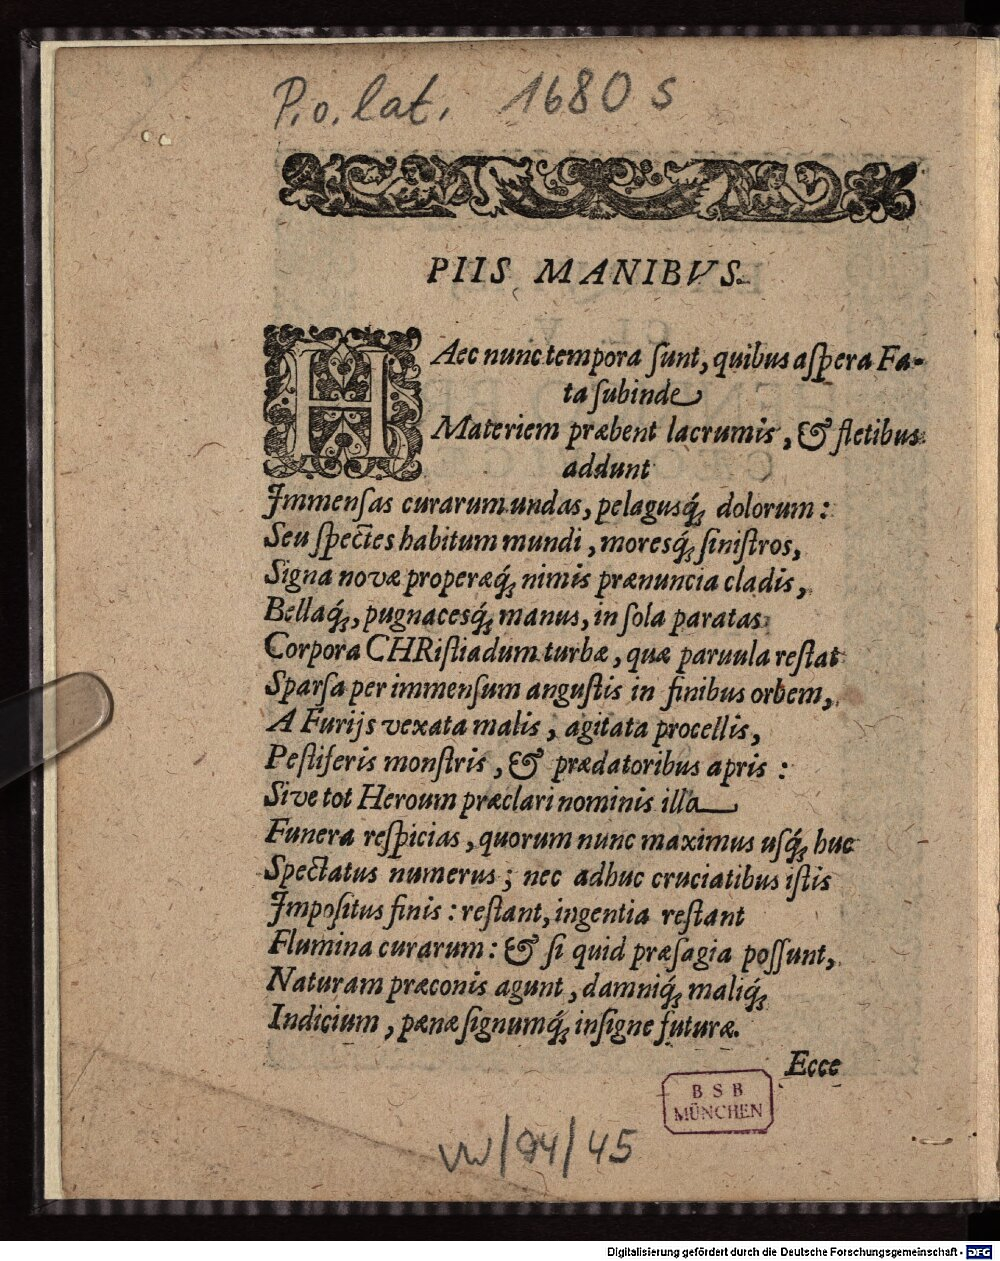 P.o.lat. 1680 s
PIIS MANIBVS.
HAec nunc tempora ſunt, quibus aſpera Fa-
ta ſubinde
Materiem præbent lacrumis, & fletibus
addunt
Jmmenſas curarum undas, pelagusq́; dolorum:
Seu ſpectes habitum mundi, moresq́; ſiniſtros,
Signa novæ properæq́; nimis prænuncia cladis,
Bellaq́;, pugnacesq́; manus, in ſola paratas
Corpora CHRiſtiadum turbæ, quæ paruula reſtat
Sparſa per immenſum anguſtis in finibus orbem,
A Furijs vexata malis, agitata procellis,
Peſtiferis monſtris, & prædatoribus apris:
Sive tot Heroum præclari nominis illa
Funera reſpicias, quorum nunc maximus uſq́; huc
Spectatus numerus; nec adhuc cruciatibus iſtis
Jmpoſitus finis: reſtant, ingentia reſtant
Flumina curarum: & ſi quid præſagia poſſunt,
Naturam præconis agunt, damniq́; maliq́;
Indicium, pænæ ſignumq́; inſigne futuræ.
Ecce
BSB
MÜNCHEN
VW/94/45
Digitalisierung gefördert durch die Deutsche Forschungsgemeinschaft - DFG